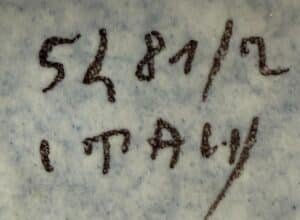 5481/2
ITALY